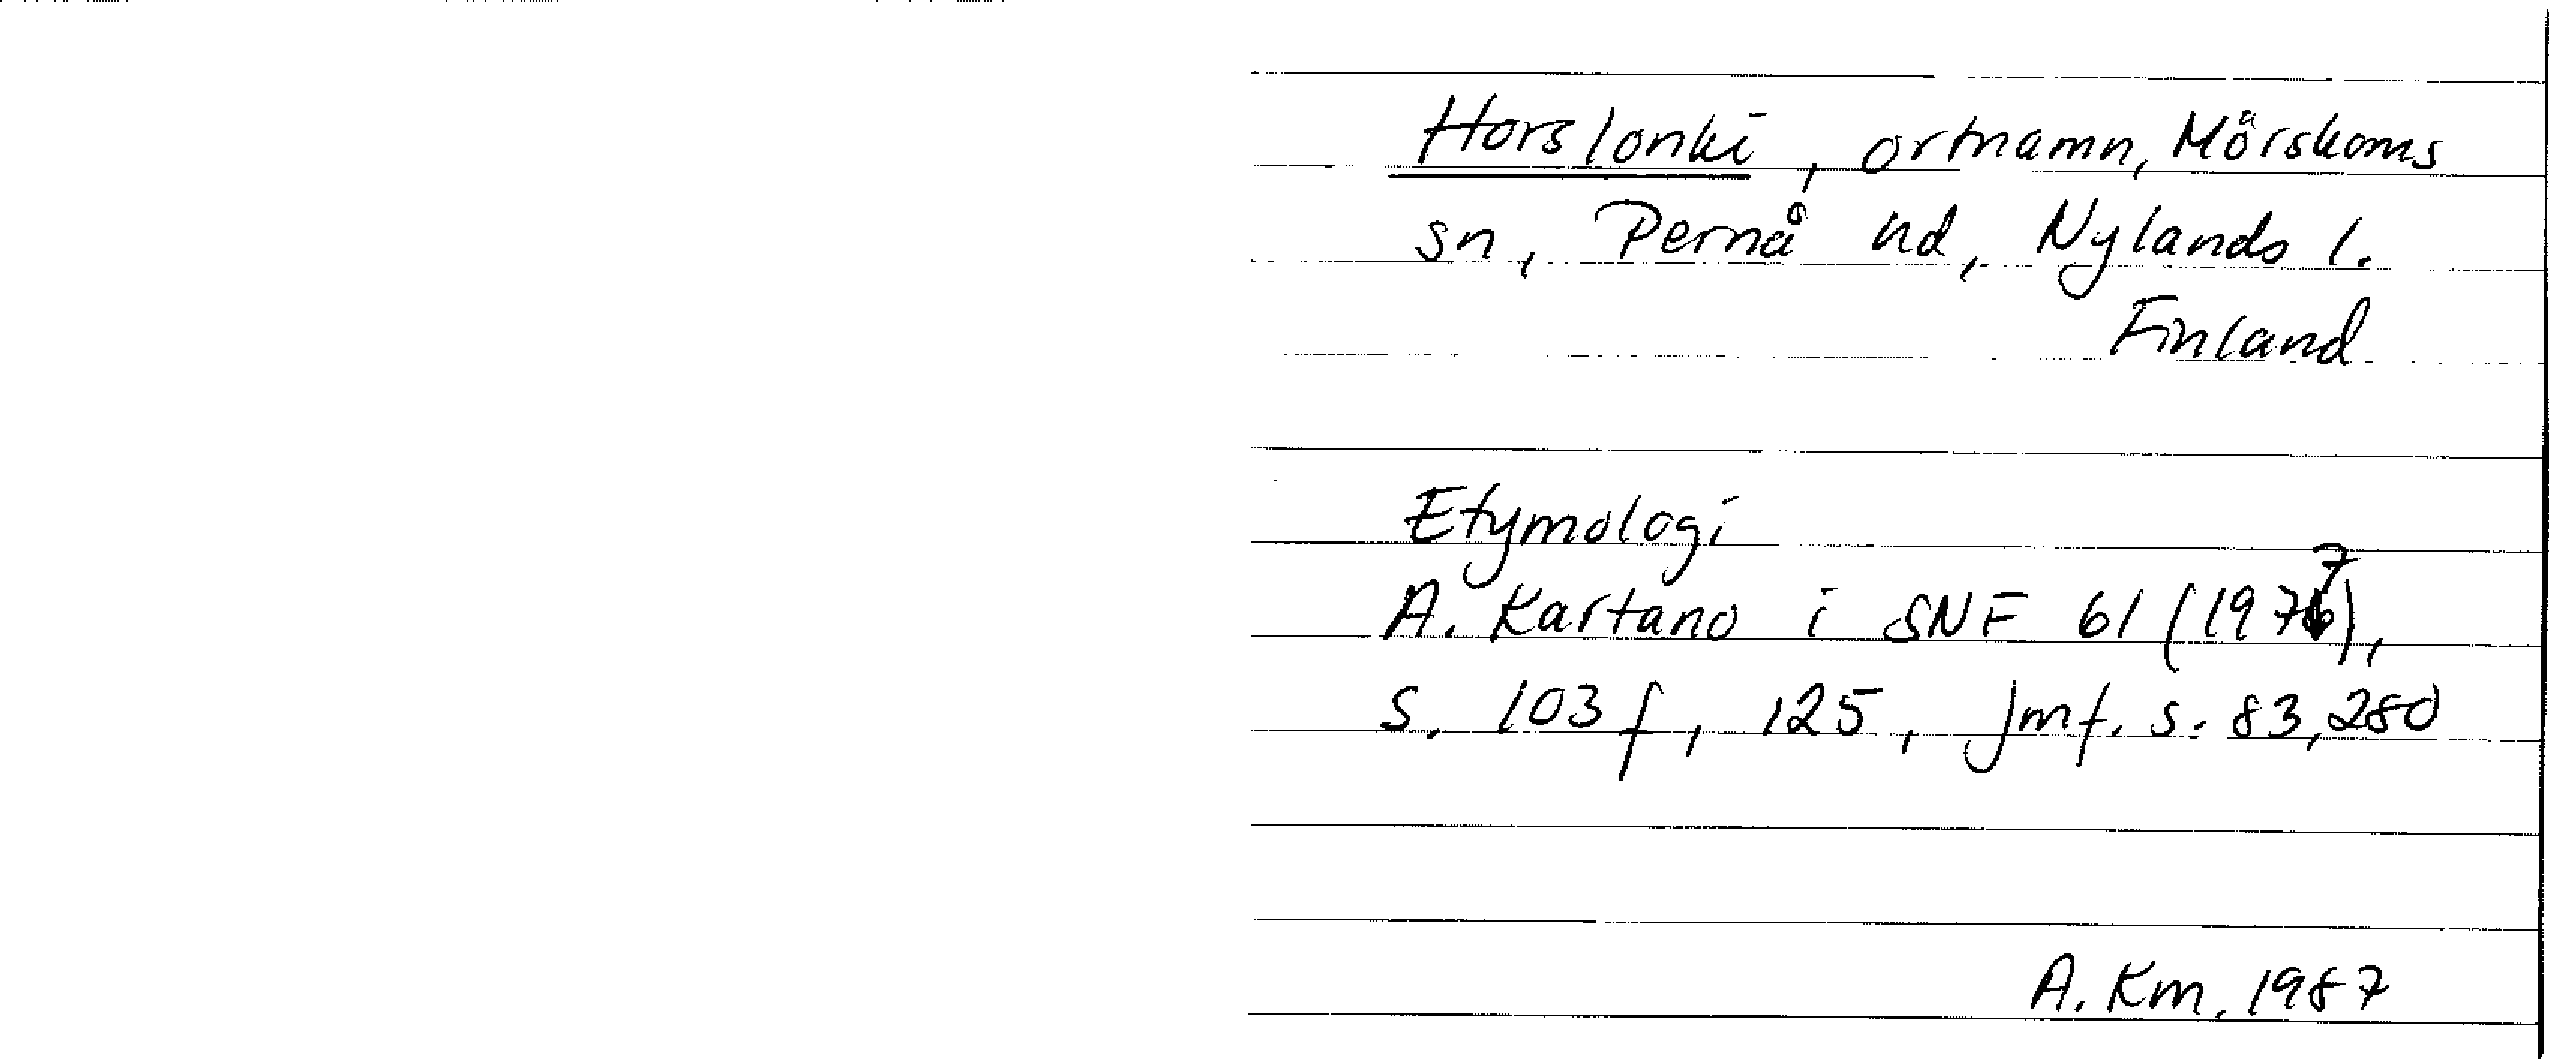 Horslonki, ortnamn, Mörskoms
sn, Pernå hd, Nylands l.
Finland
Etymologi
A. Kartano i SNF 61 (1977),
s. 103 f, 125, jmf. s. 83, 280
A. Km. 1987